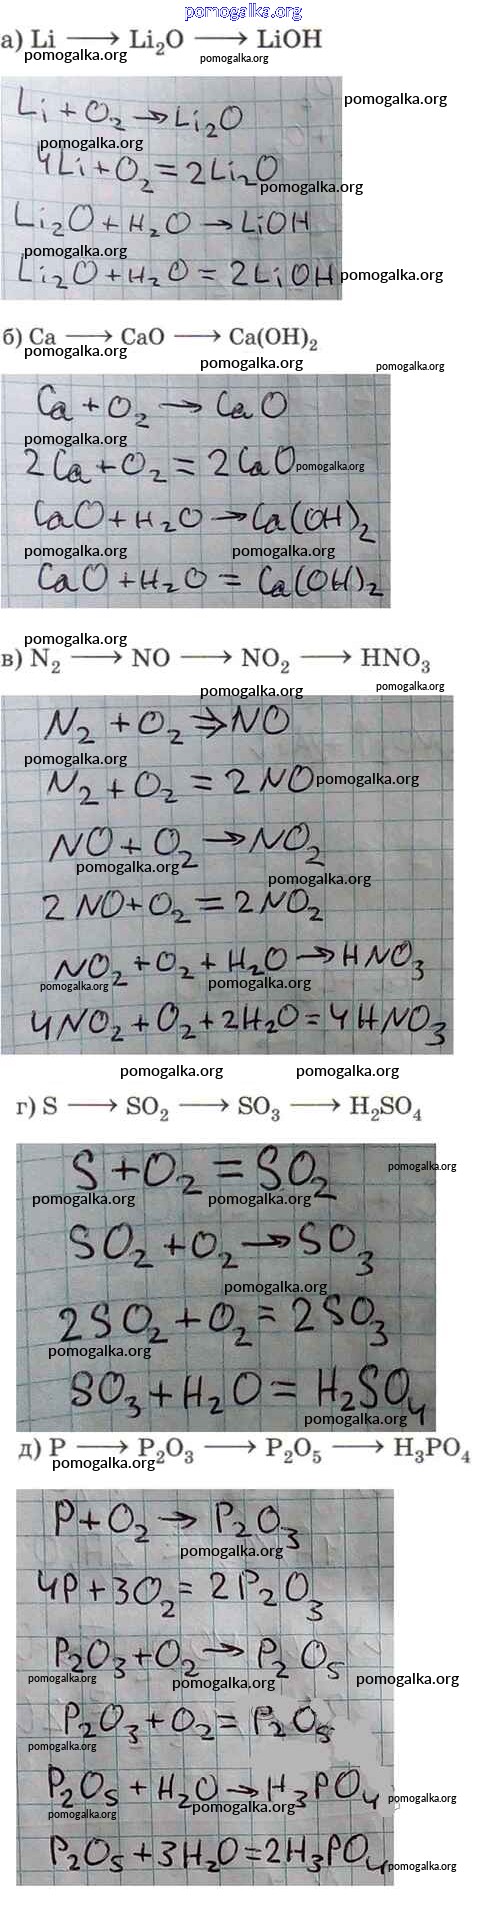 pomogalka.org
а) Li ⟶ Li₂O ⟶ LiOH
pomogalka.org pomogalka.org
Li + O₂ → Li₂O pomogalka.org
pomogalka.org
4Li + O₂ = 2Li₂O
pomogalka.org
Li₂O + H₂O → LiOH
pomogalka.org
Li₂O + H₂O = 2LiOH pomogalka.org
б) Ca ⟶ CaO ⟶ Ca(OH)₂
pomogalka.org pomogalka.org pomogalka.org
Ca + O₂ → CaO
pomogalka.org
2Ca + O₂ = 2CaO pomogalka.org
CaO + H₂O → Ca(OH)₂
pomogalka.org pomogalka.org
CaO + H₂O = Ca(OH)₂
pomogalka.org
в) N₂ ⟶ NO ⟶ NO₂ ⟶ HNO₃
pomogalka.org pomogalka.org
N₂ + O₂ → NO
pomogalka.org
N₂ + O₂ = 2NO pomogalka.org
NO + O₂ → NO₂
pomogalka.org pomogalka.org
2NO + O₂ = 2NO₂
NO₂ + O₂ + H₂O → HNO₃
pomogalka.org pomogalka.org
4NO₂ + O₂ + 2H₂O = 4HNO₃
pomogalka.org pomogalka.org
г) S ⟶ SO₂ ⟶ SO₃ ⟶ H₂SO₄
S + O₂ = SO₂ pomogalka.org
pomogalka.org pomogalka.org
SO₂ + O₂ → SO₃
pomogalka.org
2SO₂ + O₂ = 2SO₃
pomogalka.org
SO₃ + H₂O = H₂SO₄
pomogalka.org
д) P ⟶ P₂O₃ ⟶ P₂O₅ ⟶ H₃PO₄
pomogalka.org
P + O₂ → P₂O₃
pomogalka.org
4P + 3O₂ = 2P₂O₃
P₂O₃ + O₂ → P₂O₅
pomogalka.org pomogalka.org pomogalka.org
P₂O₃ + O₂ = P₂O₅
pomogalka.org
P₂O₅ + H₂O → H₃PO₄ pomogalka.org
pomogalka.org pomogalka.org
P₂O₅ + 3H₂O = 2H₃PO₄ pomogalka.org